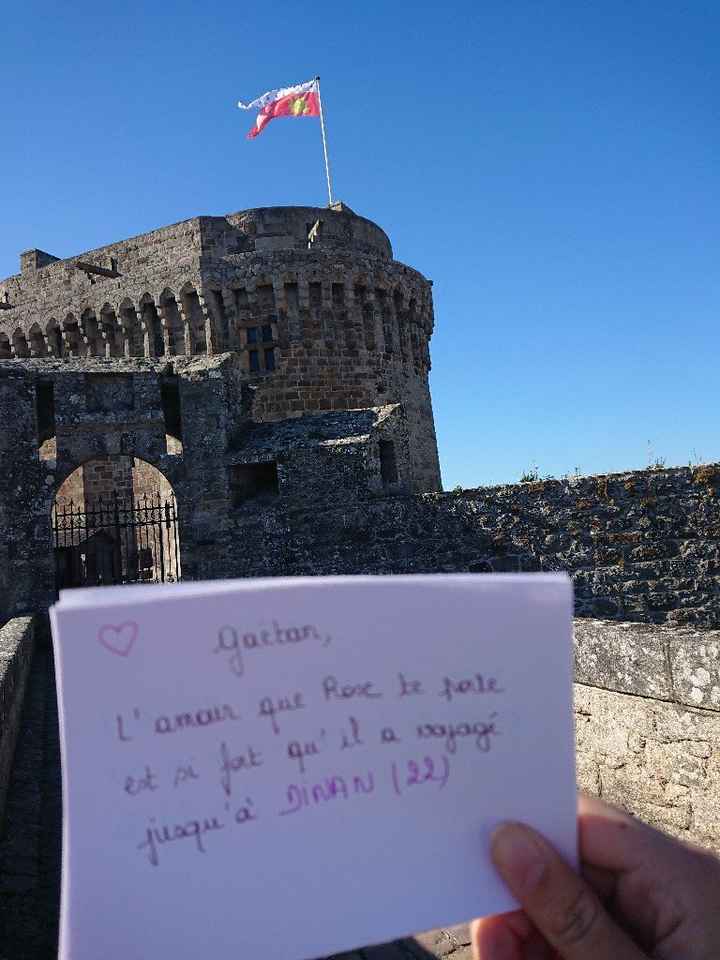 Gaëtan,
L'amour que Rose te porte
est si fort qu'il a voyagé
jusqu'à DINAN (22)